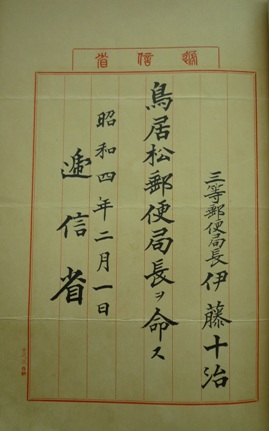 遞信省
三等郵便局長 伊藤十治
鳥居松郵便局長ヲ命ス
昭和四年二月一日
遞信省